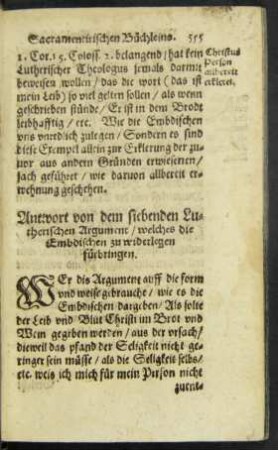 Sacramentirischen Büchleins. 515
1. Cor. 15. Coloss. 2. belangend / hat kein
Lutherischer Theologus jemals darmit
beweisen wollen / das die wort (das ist
mein Leib) so viel gelten sollen / als wenn
geschrieben stünde / Er ist in dem Brodt
leibhafftig / etc. Wie die Embdischen
vns vnredlich zulegen / Sondern es sind
diese Exempel allein zur Erklerung der zu-
uor aus andern Gründen erwiesenen /
sach geführet / wie daruon allbereit er-
wehnung geschehen.
Christus
Person
allbereit
erkleret.
Antwort von dem siebenden Lu-
therischen Argument / welches die
Embdischen zu widerlegen
fürbringen.
WEr dis Argument auff die form
vnd weise gebrauche / wie es die
Embdischen dargeben / Als solte
der Leib vnd Blut Christi im Brot vnd
Wein gegeben werden / aus der vrsach /
dieweil das pfand der Seligkeit nicht ge-
ringer sein müsse / als die Seligkeit selbs /
etc. weis ich mich für mein Person nicht
zuent-